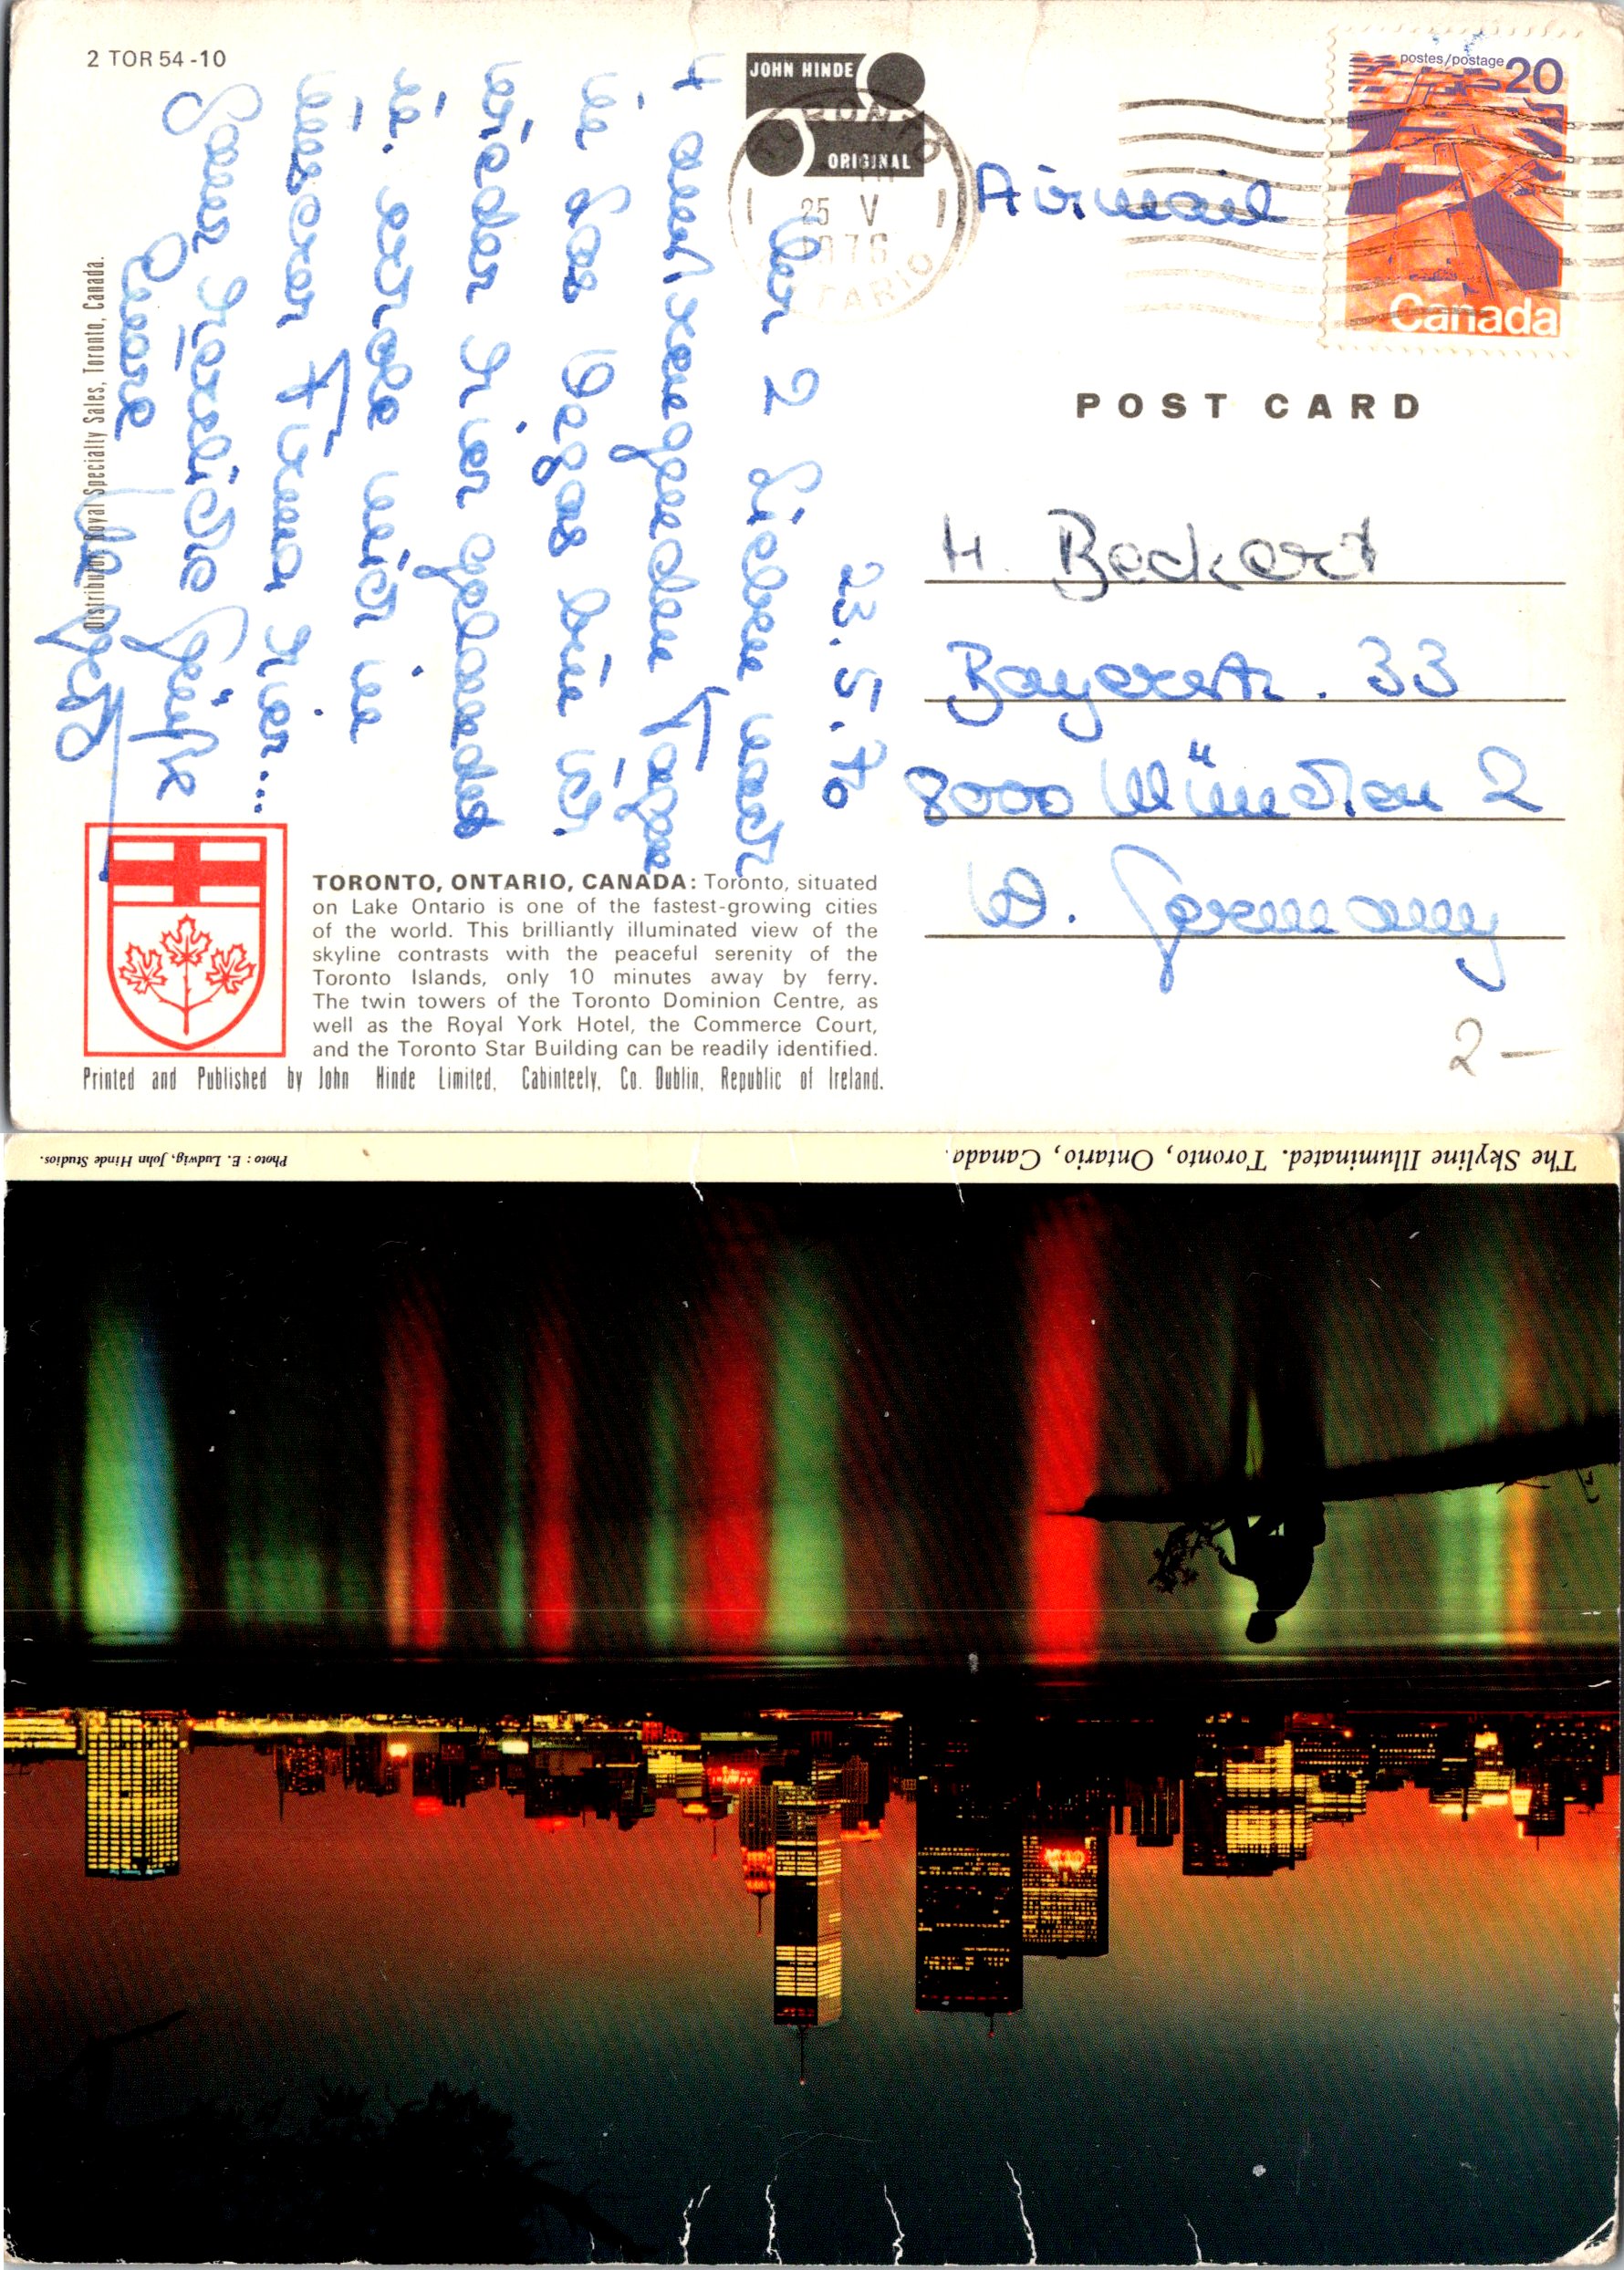 2 TOR 54-10
JOHN HINDE
ORIGINAL
TORONTO
25 V
1976
ONTARIO
postes/postage 20
Canada
Airmail
POST CARD
H. Beckert
Bayerstr. 33
8000 München 2
W. Germany
2 —
23.5.76
Ihr 2 Lieben nach
4 anstrengenden Tagen
in Las Vegas bin ich
wieder hier gelandet
u. erhole mich in
unserer Firma hier....
Ganz herzliche Grüße
Eure
Distributor: Royal Specialty Sales, Toronto, Canada.
TORONTO, ONTARIO, CANADA: Toronto, situated
on Lake Ontario is one of the fastest-growing cities
of the world. This brilliantly illuminated view of the
skyline contrasts with the peaceful serenity of the
Toronto Islands, only 10 minutes away by ferry.
The twin towers of the Toronto Dominion Centre, as
well as the Royal York Hotel, the Commerce Court,
and the Toronto Star Building can be readily identified.
Printed and Published by John Hinde Limited, Cabinteely, Co. Dublin, Republic of Ireland.
The Skyline Illuminated. Toronto, Ontario, Canada.
Photo: E. Ludwig, John Hinde Studios.